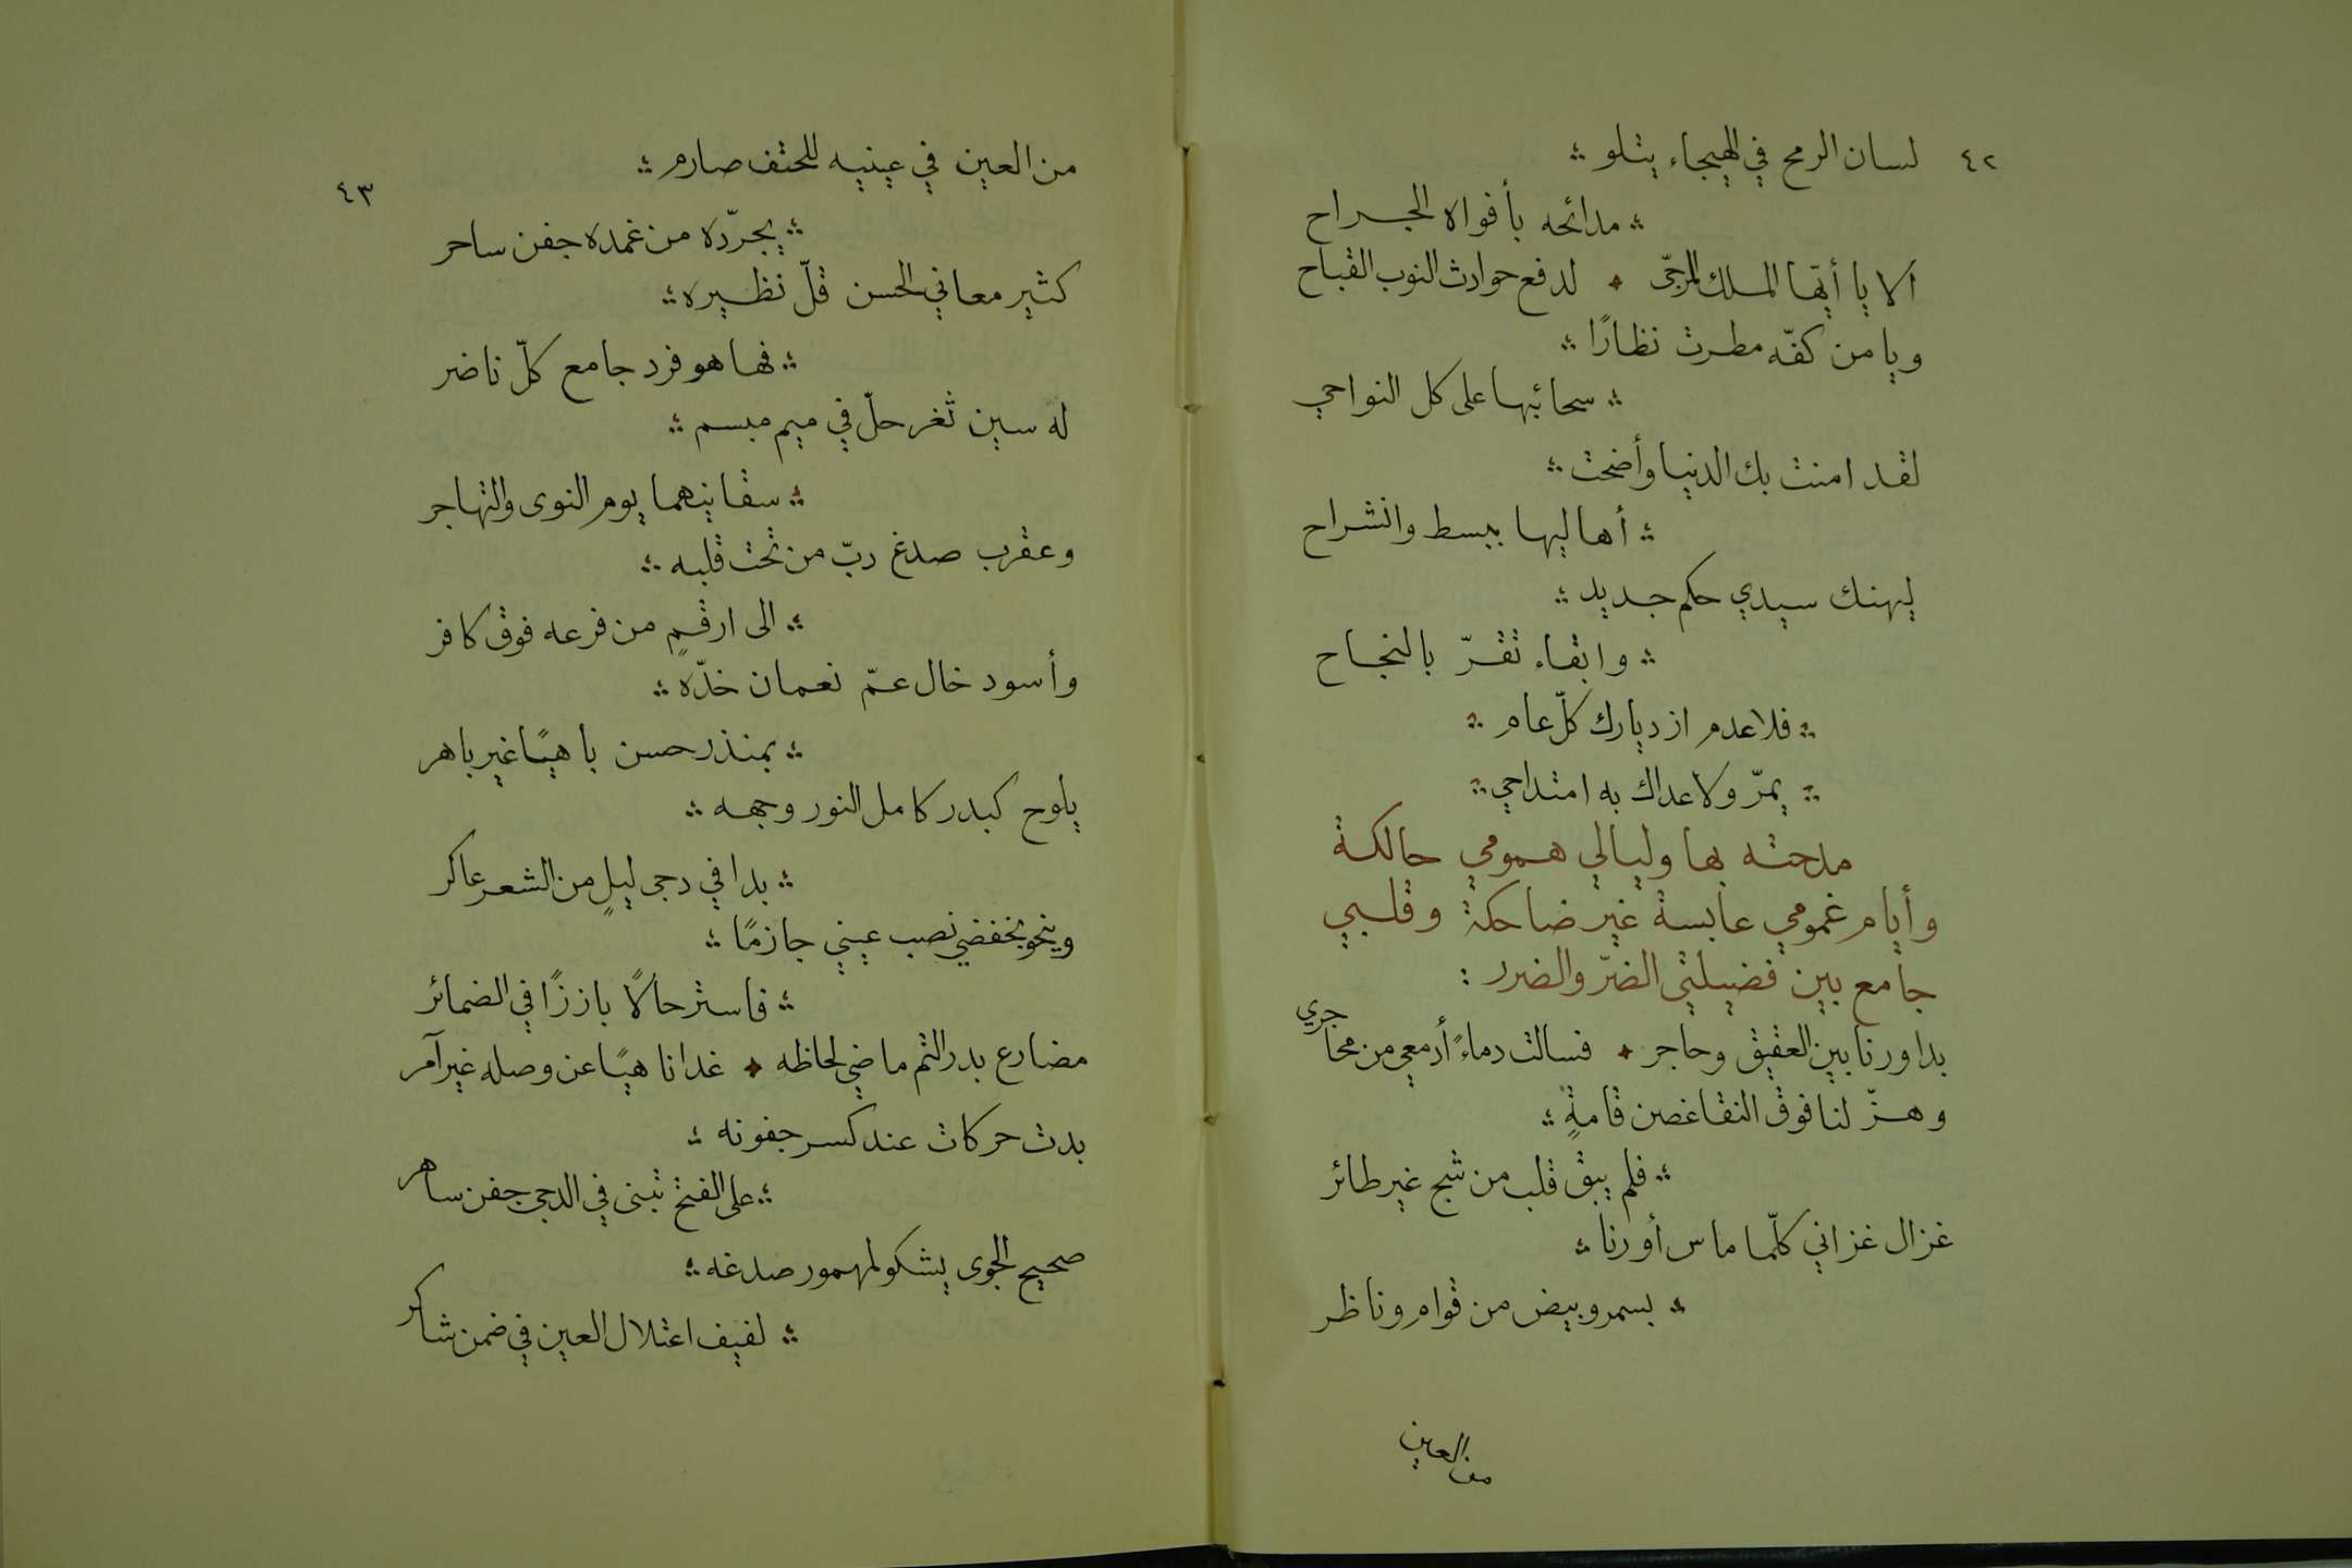 ٤٢ لسان الرمح في الهيجاء يتلو ؞
؞ مدائحه بأفواه الجراح
ألا يا أيّها الملك المرجّى ✦ لدفع حوادث النوب القباح
ويا من كفّه مطرت نظارًا ؞
؞ سحائبها على كل النواحي
لقد امنت بك الدنيا وأضحت ؞
؞ أهاليها ببسط وانشراح
ليهنك سيدي حكم جديد ؞
؞ وابقاء تقرّ بالنجاح
؞ فلا عدم ازديارك كلّ عام ؞
؞ يمرّ ولا عداك به امتداحي ؞
مدحته بها وليالي همومي حالكة
وأيام غمومي عابسة غير ضاحكة وقلبي
جامع بين فضيلتي الضرّ والضرر :
بدا ورنا بين العقيق وحاجر ✦ فسالت دماءً أدمعي من محاجري
وهزّ لنا فوق النقا غصن قامةٍ ؞
؞ فلم يبق قلب من شج غير طائر
غزال غزاني كلّما ماس أو رنا ؞
؞ بسمر وبيض من قوام وناظر
من العين
٤٣
من العين في عينيه للحتف صارم ؞
؞ يجرّده من غمده جفن ساحر
كثير معاني الحسن قلّ نظيره ؞
؞ فها هو فرد جامع كلّ ناضر
له سين ثغر حلّ في ميم مبسم ؞
؞ سقانيهما يوم النوى والتهاجر
وعقرب صدغ دبّ من تحت قلبه ؞
؞ الى ارقمٍ من فرعه فوق كافر
وأسود خال عمّ نعمان خدّه ؞
؞ بمنذر حسن باهيًا غير باهر
يلوح كبدر كامل النور وجهه ؞
؞ بدا في دجى ليلٍ من الشعر عاكر
وينحو بخفضي نصب عيني جازمًا ؞
؞ فاستر حالًا بارزًا في الضمائر
مضارع بدر التم ماضي لحاظه ✦ غدا ناهيًا عن وصله غير آمر
بدت حركات عند كسر جفونه ؞
؞ على الفتح تبنى في الدجى جفن ساهر
صحيح الجوى يشكو لمهمور صدغه ؞
؞ لفيف اعتلال العين في ضمن شاكر